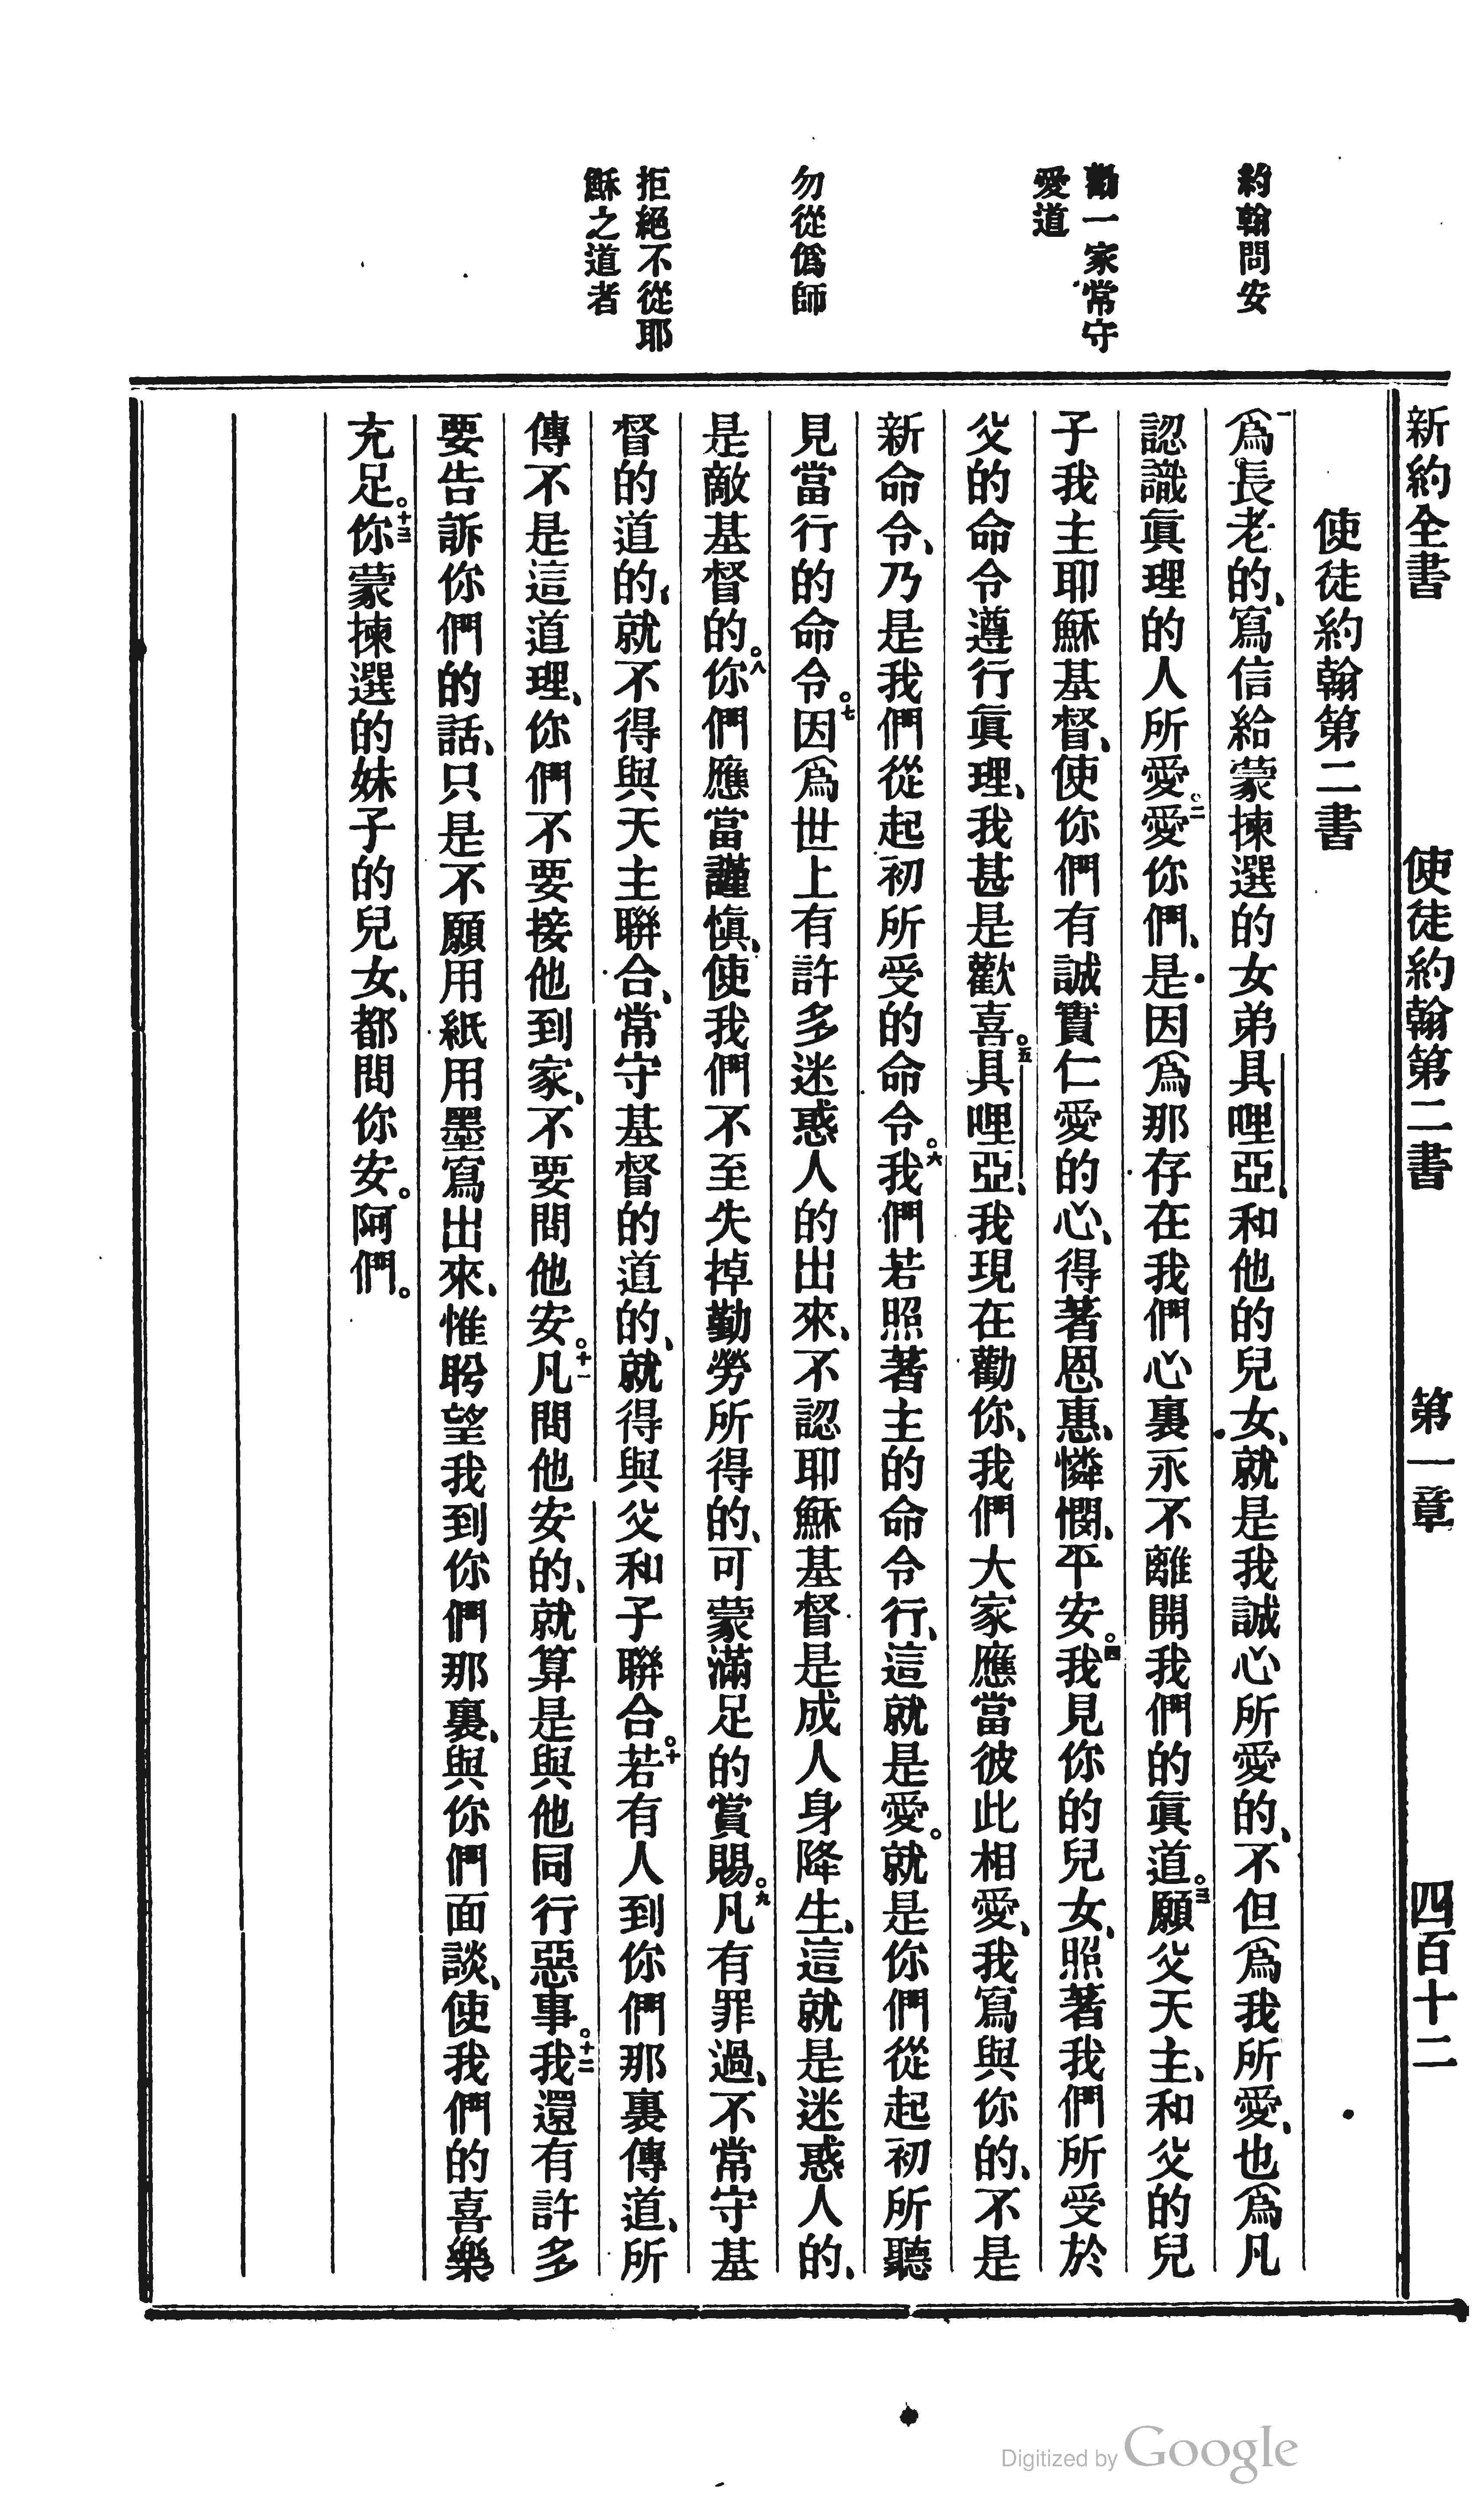 新約全書　使徒約翰第二書　第一章　四百十二
約翰問安
勸一家常守
愛道
勿從僞師
拒絕不從耶
穌之道者
使徒約翰第二書
一爲長老的、寫信給蒙揀選的女弟具哩亞、和他的兒女、就是我誠心所愛的、不但爲我所愛、也爲凡
認識眞理的人所愛。二愛你們、是因爲那存在我們心裏永不離開我們的眞道。三願父天主、和父的兒
子我主耶穌基督、使你們有誠實仁愛的心、得著恩惠、憐憫、平安。四我見你的兒女、照著我們所受於
父的命令遵行眞理、我甚是歡喜。五具哩亞、我現在勸你、我們大家應當彼此相愛、我寫與你的、不是
新命令、乃是我們從起初所受的命令。六我們若照著主的命令行、這就是愛。就是你們從起初所聽
見當行的命令。七因爲世上有許多迷惑人的出來、不認耶穌基督是成人身降生、這就是迷惑人的、
是敵基督的。八你們應當謹愼、使我們不至失掉勤勞所得的、可蒙滿足的賞賜。九凡有罪過、不常守基
督的道的、就不得與天主聯合、常守基督的道的、就得與父和子聯合。十若有人到你們那裏傳道、所
傳不是這道理、你們不要接他到家、不要問他安。十一凡問他安的、就算是與他同行惡事。十二我還有許多
要告訴你們的話、只是不願用紙用墨寫出來、惟盻望我到你們那裏、與你們面談、使我們的喜樂
充足。十三你蒙揀選的妹子的兒女、都問你安。阿們。
Digitized by Google